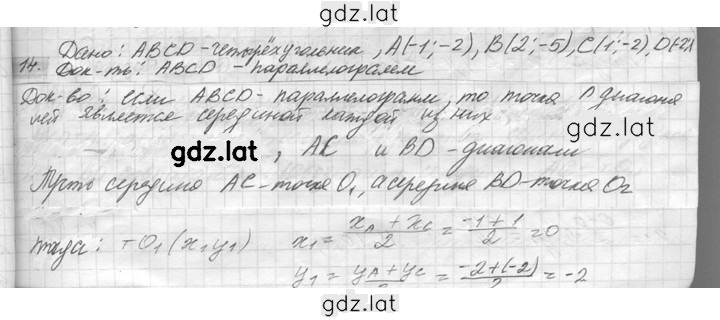 gdz.lat
Дано: ABCD - четырёхугольник, A(-1;-2), B(2;-5), C(1;-2), D(-2;1
14. Док-ть: ABCD - параллелограмм
Док-во: если ABCD - параллелограмм, то точка ∩ диагона
лей является серединой каждой из них
gdz.lat , AC и BD - диагонали
gdz.lat
Пусть середина AC - точка O₁, а середина BD - точка O₂
тогда: т O₁ (x₁ y₁) x₁ = (x_A + x_C)/2 = (-1 + 1)/2 = 0
y₁ = (y_A + y_C)/2 = (-2 + (-2))/2 = -2
gdz.lat